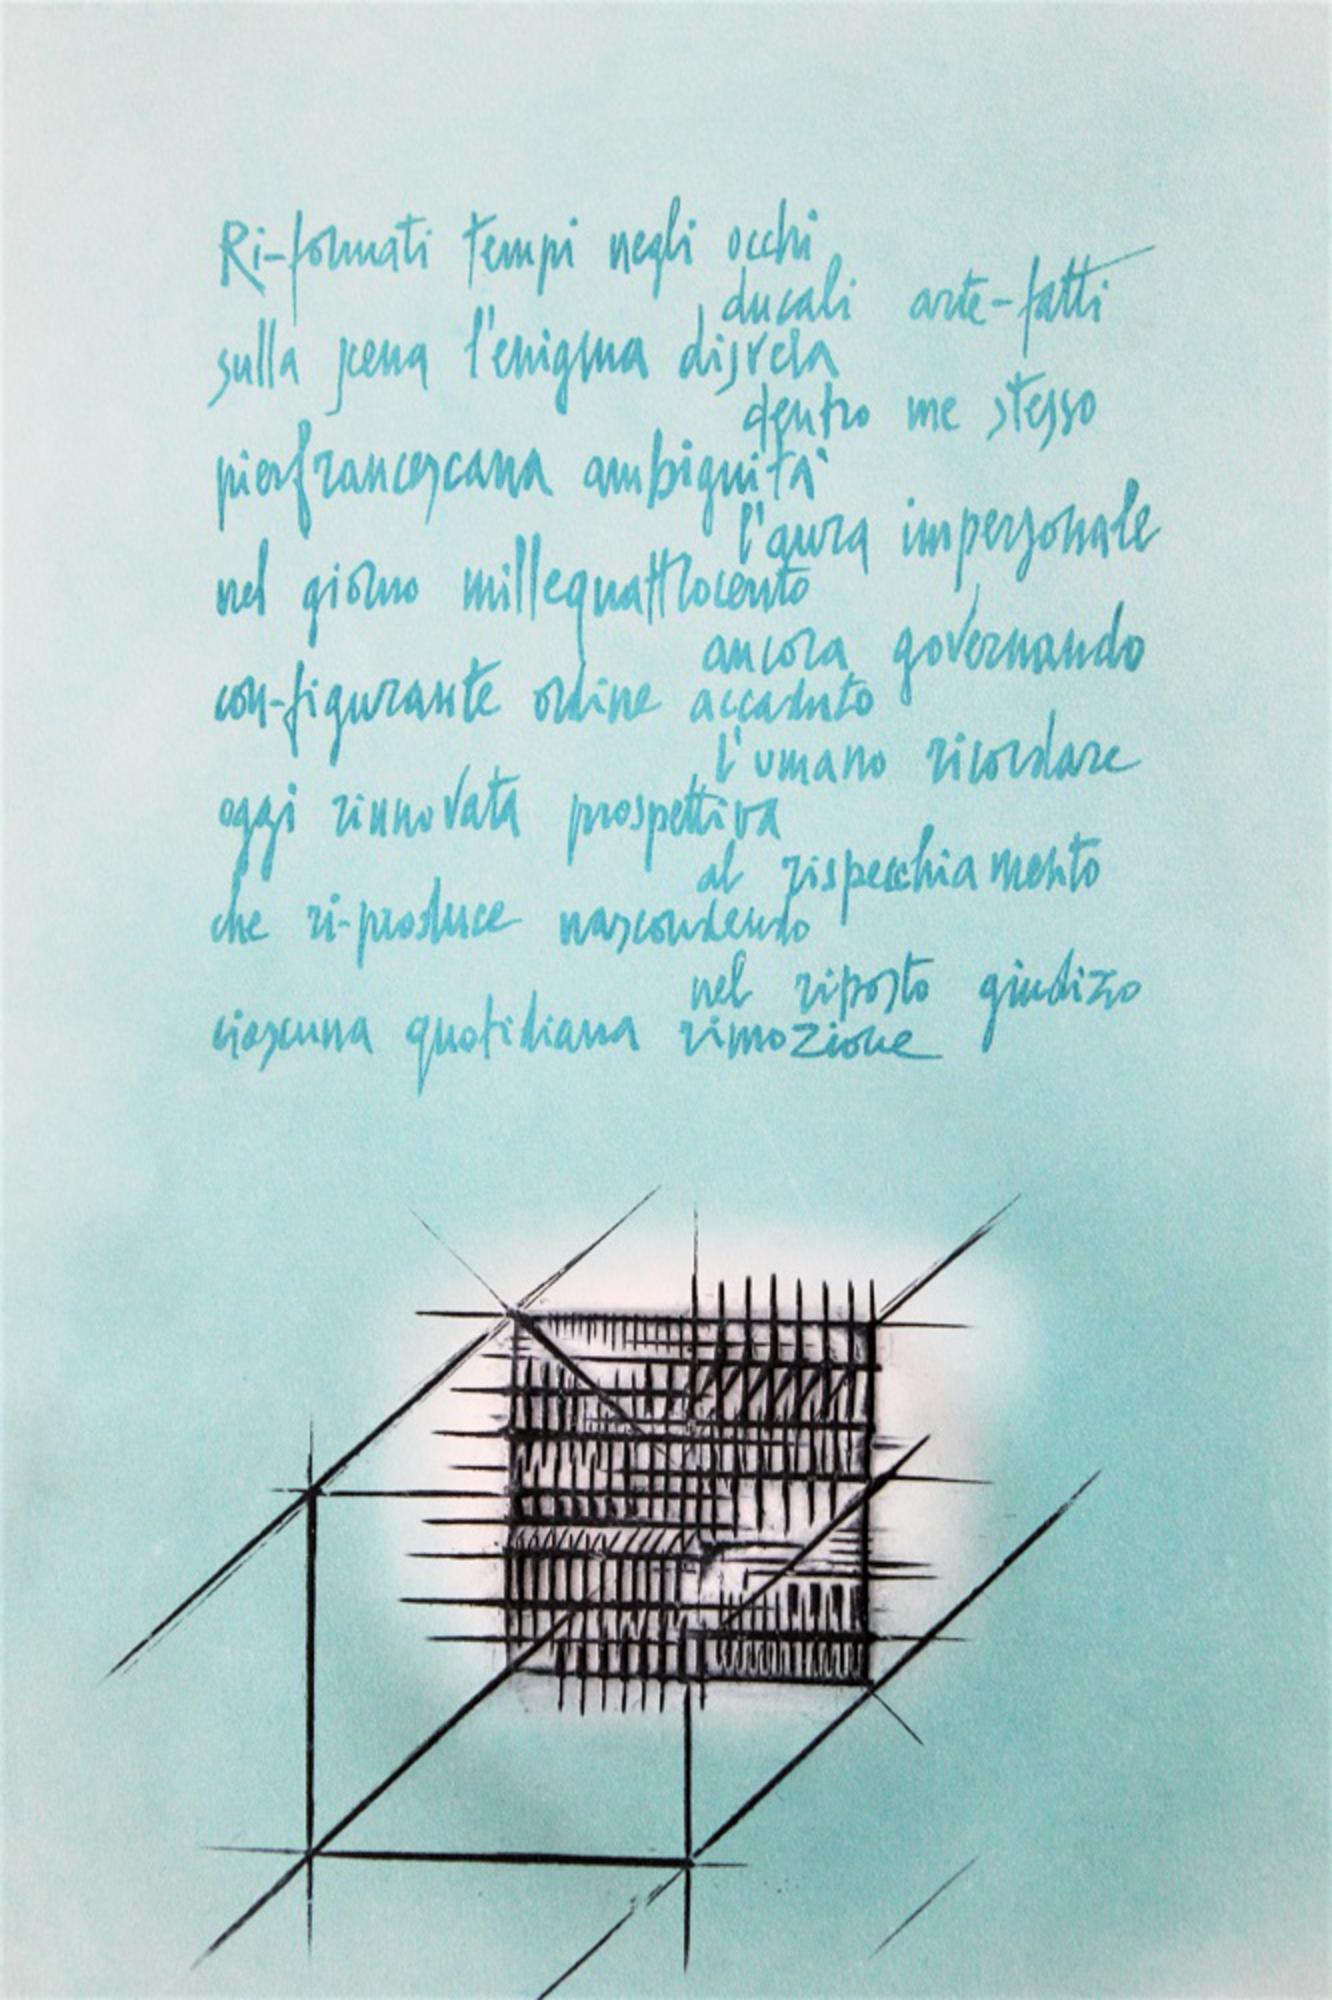 Ri-formati tempi negli occhi
ducali arte-fatti
sulla scena l'enigma disvela
dentro me stesso
pierfrancescana ambiguità
l'aura impersonale
nel giorno millequattrocento
ancora governando
con-figurante ordine accaduto
l'umano ricordare
oggi rinnovata prospettiva
al rispecchiamento
che ri-produce nascondendo
nel riposto giudizio
ciascuna quotidiana rimozione